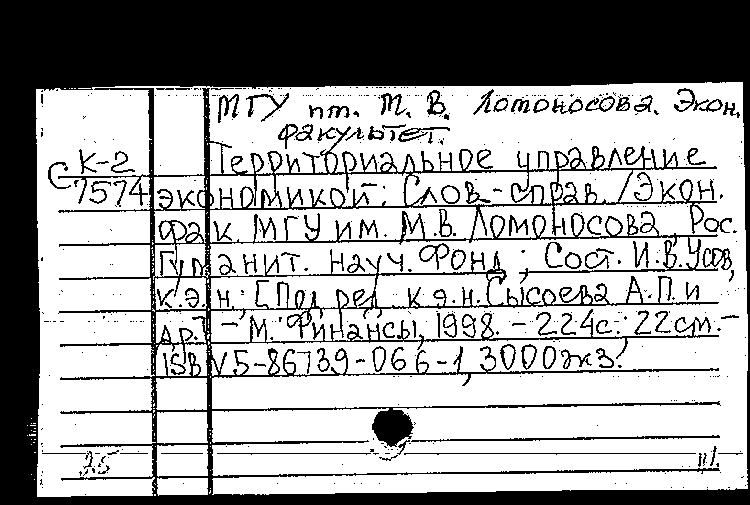 МГУ им. М. В. Ломоносова. Экон.
факультет.
К-2 Территориальное управление
С 7574 экономикой: Слов.-справ. /Экон.
фак. МГУ им. М.В. Ломоносова, Рос.
Гуманит. науч. Фонд; Сост. И.В. Усов,
к.э.н.; [Под ред. к.э.н. Сысоева А.П. и
др.] - М.: Финансы, 1998. - 224с.; 22см. -
ISBN 5-86739-066-1, 3000экз.
25